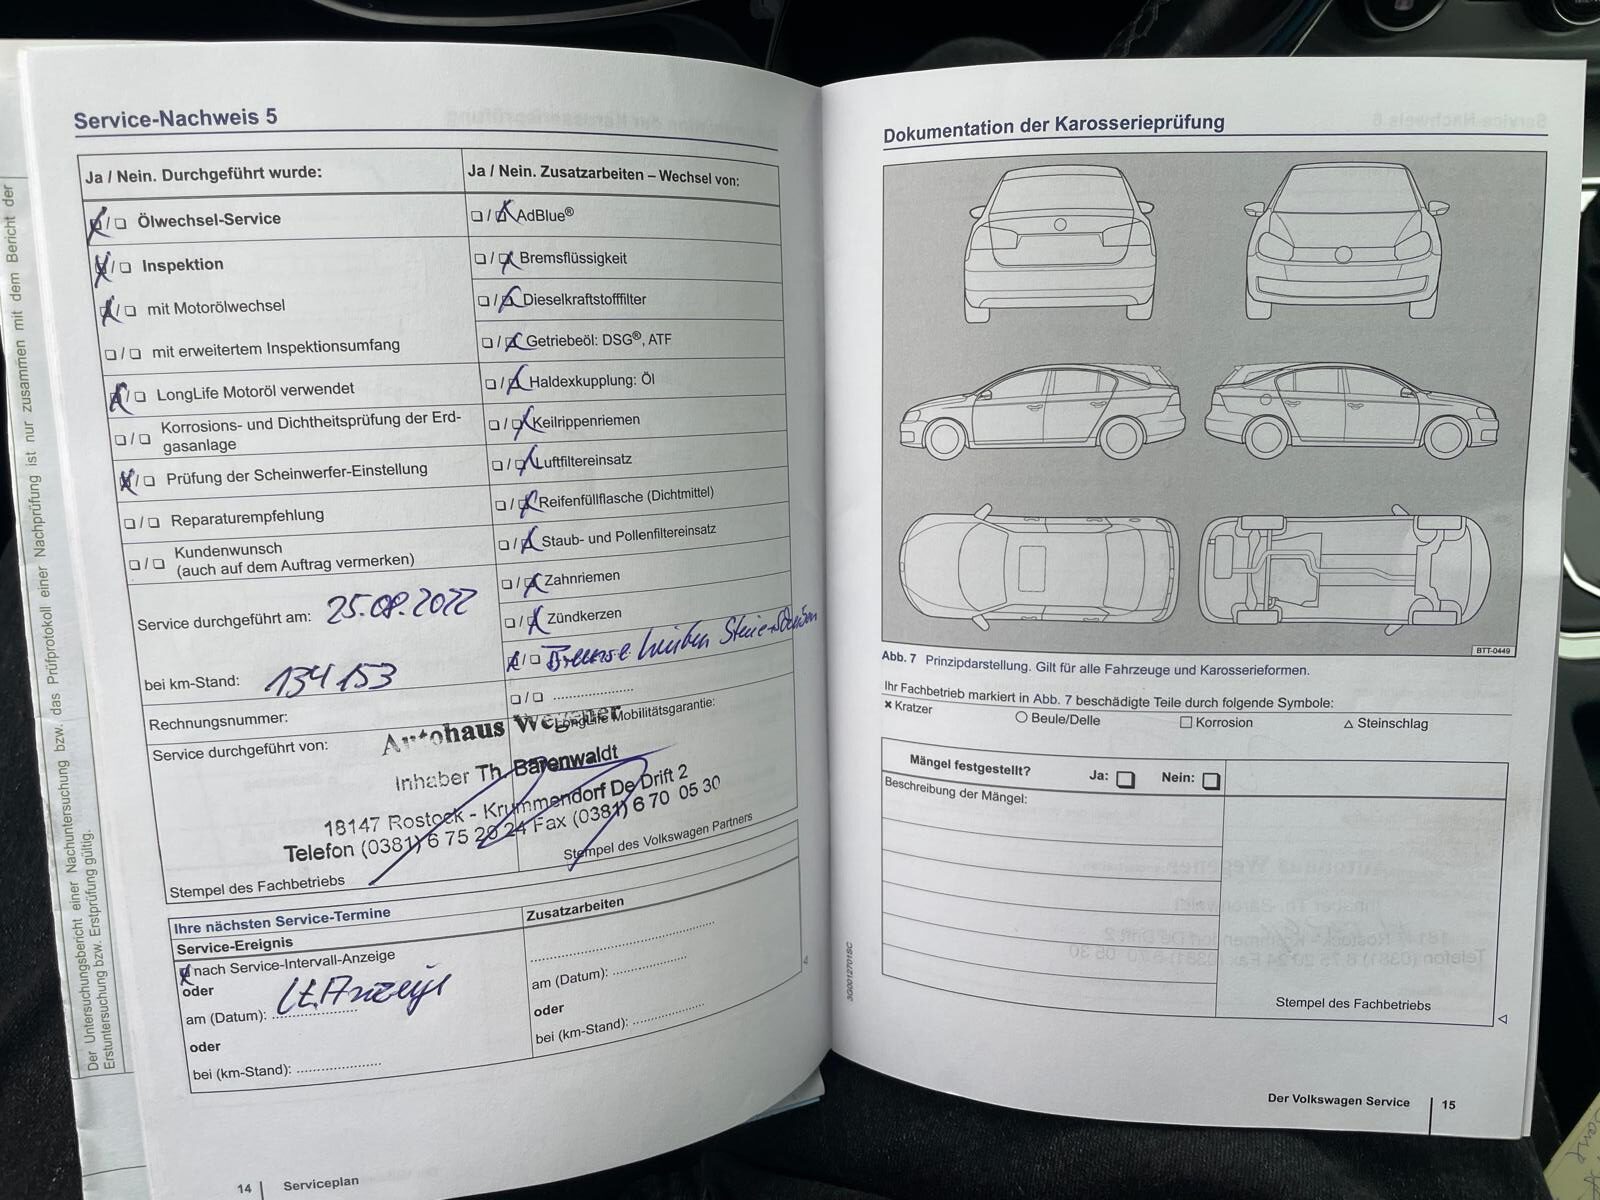 Service-Nachweis 5
Ja / Nein. Durchgeführt wurde:
Ölwechsel-Service
Inspektion
mit Motorölwechsel
mit erweitertem Inspektionsumfang
LongLife Motoröl verwendet
Korrosions- und Dichtheitsprüfung der Erd-
gasanlage
Prüfung der Scheinwerfer-Einstellung
Reparaturempfehlung
Kundenwunsch
(auch auf dem Auftrag vermerken)
Service durchgeführt am: 25.08.2022
bei km-Stand: 134153
Rechnungsnummer:
Service durchgeführt von:
Ja / Nein. Zusatzarbeiten – Wechsel von:
AdBlue®
Bremsflüssigkeit
Dieselkraftstofffilter
Getriebeöl: DSG®, ATF
Haldexkupplung: Öl
Keilrippenriemen
Luftfiltereinsatz
Reifenfüllflasche (Dichtmittel)
Staub- und Pollenfiltereinsatz
Zahnriemen
Zündkerzen
Bremse hinten
LongLife Mobilitätsgarantie:
Autohaus Wegener
Inhaber Th. Bärenwaldt
18147 Rostock - Krummendorf De Drift 2
Telefon (0381) 6 75 20 24 Fax (0381) 6 70 05 30
Stempel des Fachbetriebs
Stempel des Volkswagen Partners
Ihre nächsten Service-Termine
Service-Ereignis
nach Service-Intervall-Anzeige
oder
am (Datum): Lt. Anzeige
oder
bei (km-Stand):
Zusatzarbeiten
am (Datum):
oder
bei (km-Stand):
14 | Serviceplan
Der Untersuchungsbericht einer Nachuntersuchung bzw. das Prüfprotokoll einer Nachprüfung ist nur zusammen mit dem Bericht der
Erstuntersuchung bzw. Erstprüfung gültig.
Dokumentation der Karosserieprüfung
BTT-0449
Abb. 7 Prinzipdarstellung. Gilt für alle Fahrzeuge und Karosserieformen.
Ihr Fachbetrieb markiert in Abb. 7 beschädigte Teile durch folgende Symbole:
× Kratzer
○ Beule/Delle
□ Korrosion
△ Steinschlag
Mängel festgestellt? Ja: □ Nein: □
Beschreibung der Mängel:
Stempel des Fachbetriebs
3G0012701SC
Der Volkswagen Service | 15